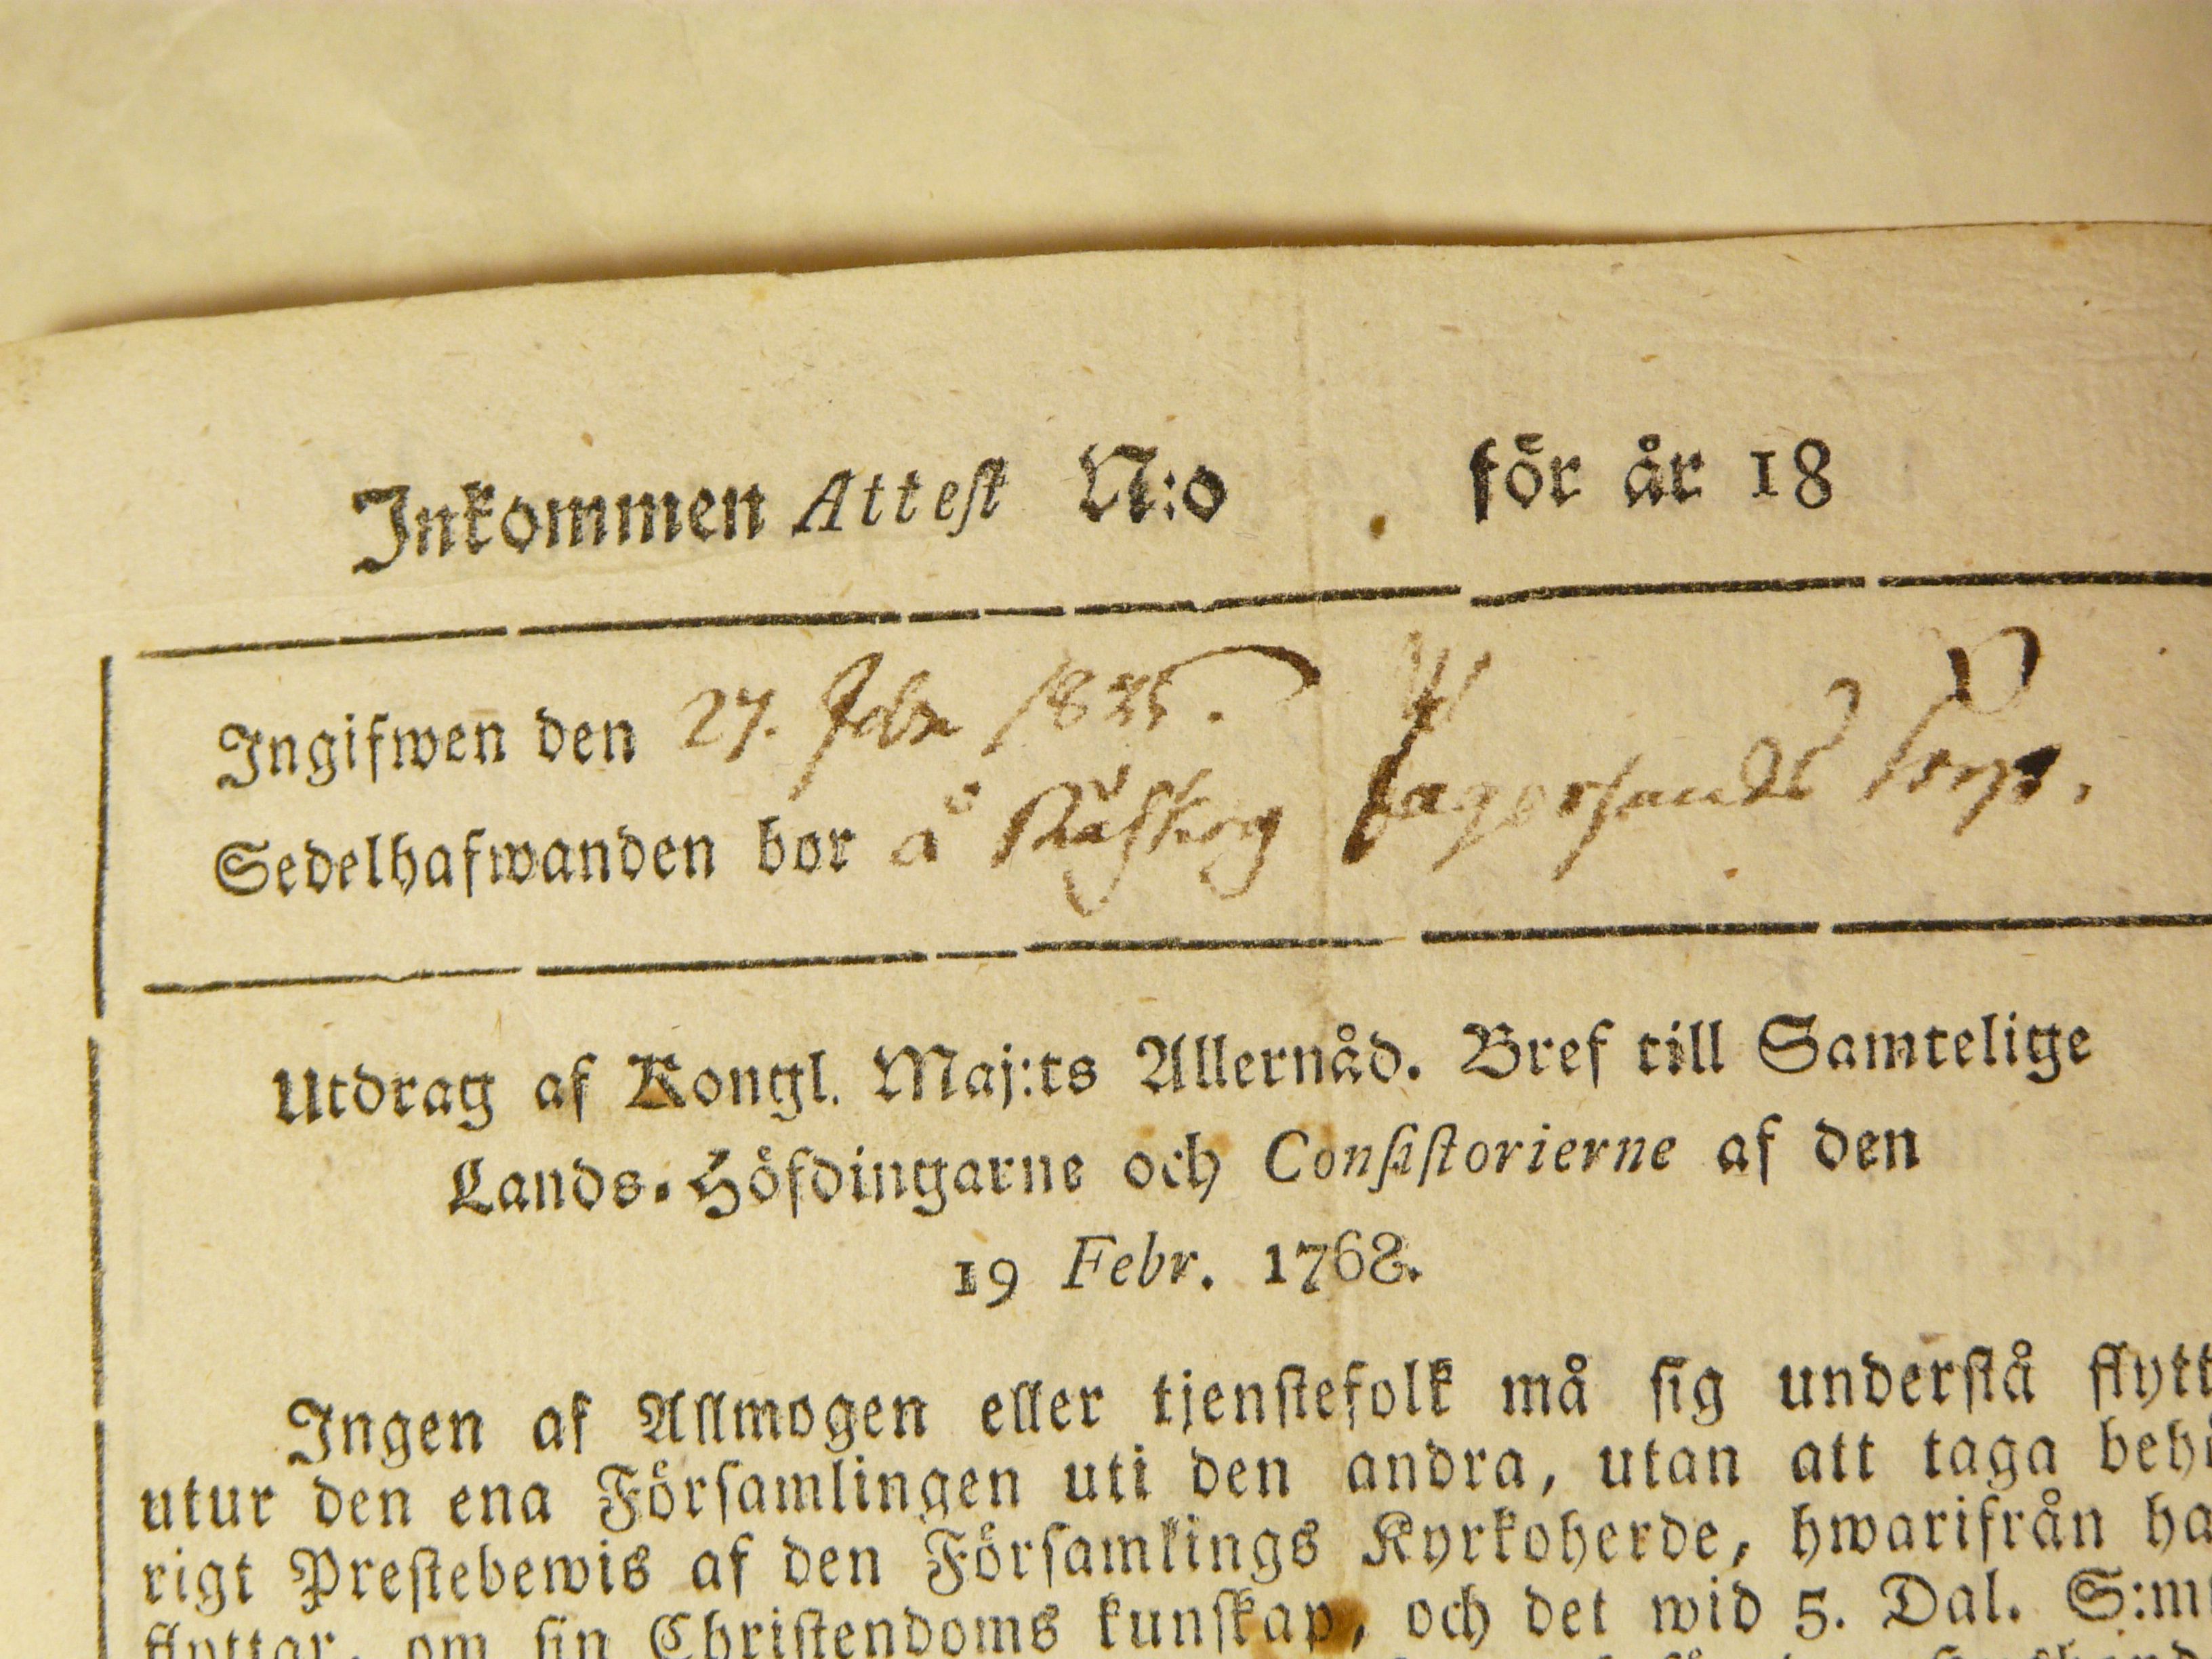 Inkommen Attest N:o för år 18
Ingifwen den 27. Febr 1835.
Sedelhafwanden bor å Råskog Fagersands
Utdrag af Kongl. Maj:ts Allernåd. Bref till Samtelige
Lands-Höfdingarne och Consistorierne af den
19 Febr. 1768.
Ingen af Allmogen eller tjenstefolk må sig understå flytt
utur den ena Församlingen uti den andra, utan att taga behö
rigt Prestebewis af den Församlings Kyrkoherde, hwarifrån ha
flyttar, om sin Christendoms kunskap, och det wid 5. Dal. S:m